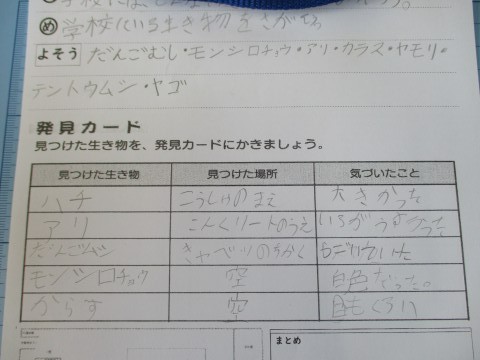 め 学校にいる生き物をさがそう。
よそう だんごむし・モンシロチョウ・アリ・カラス・ヤモリ・
テントウムシ・ヤゴ
発見カード
見つけた生き物を、発見カードにかきましょう。
見つけた生き物 見つけた場所 気づいたこと
ハチ こうしゃのまえ 大きかった
アリ こんくリートのうえ いろがうすかった
だんごムシ きゃべつのちかく
モンシロチョウ 空 白色だった。
からす 空
まとめ